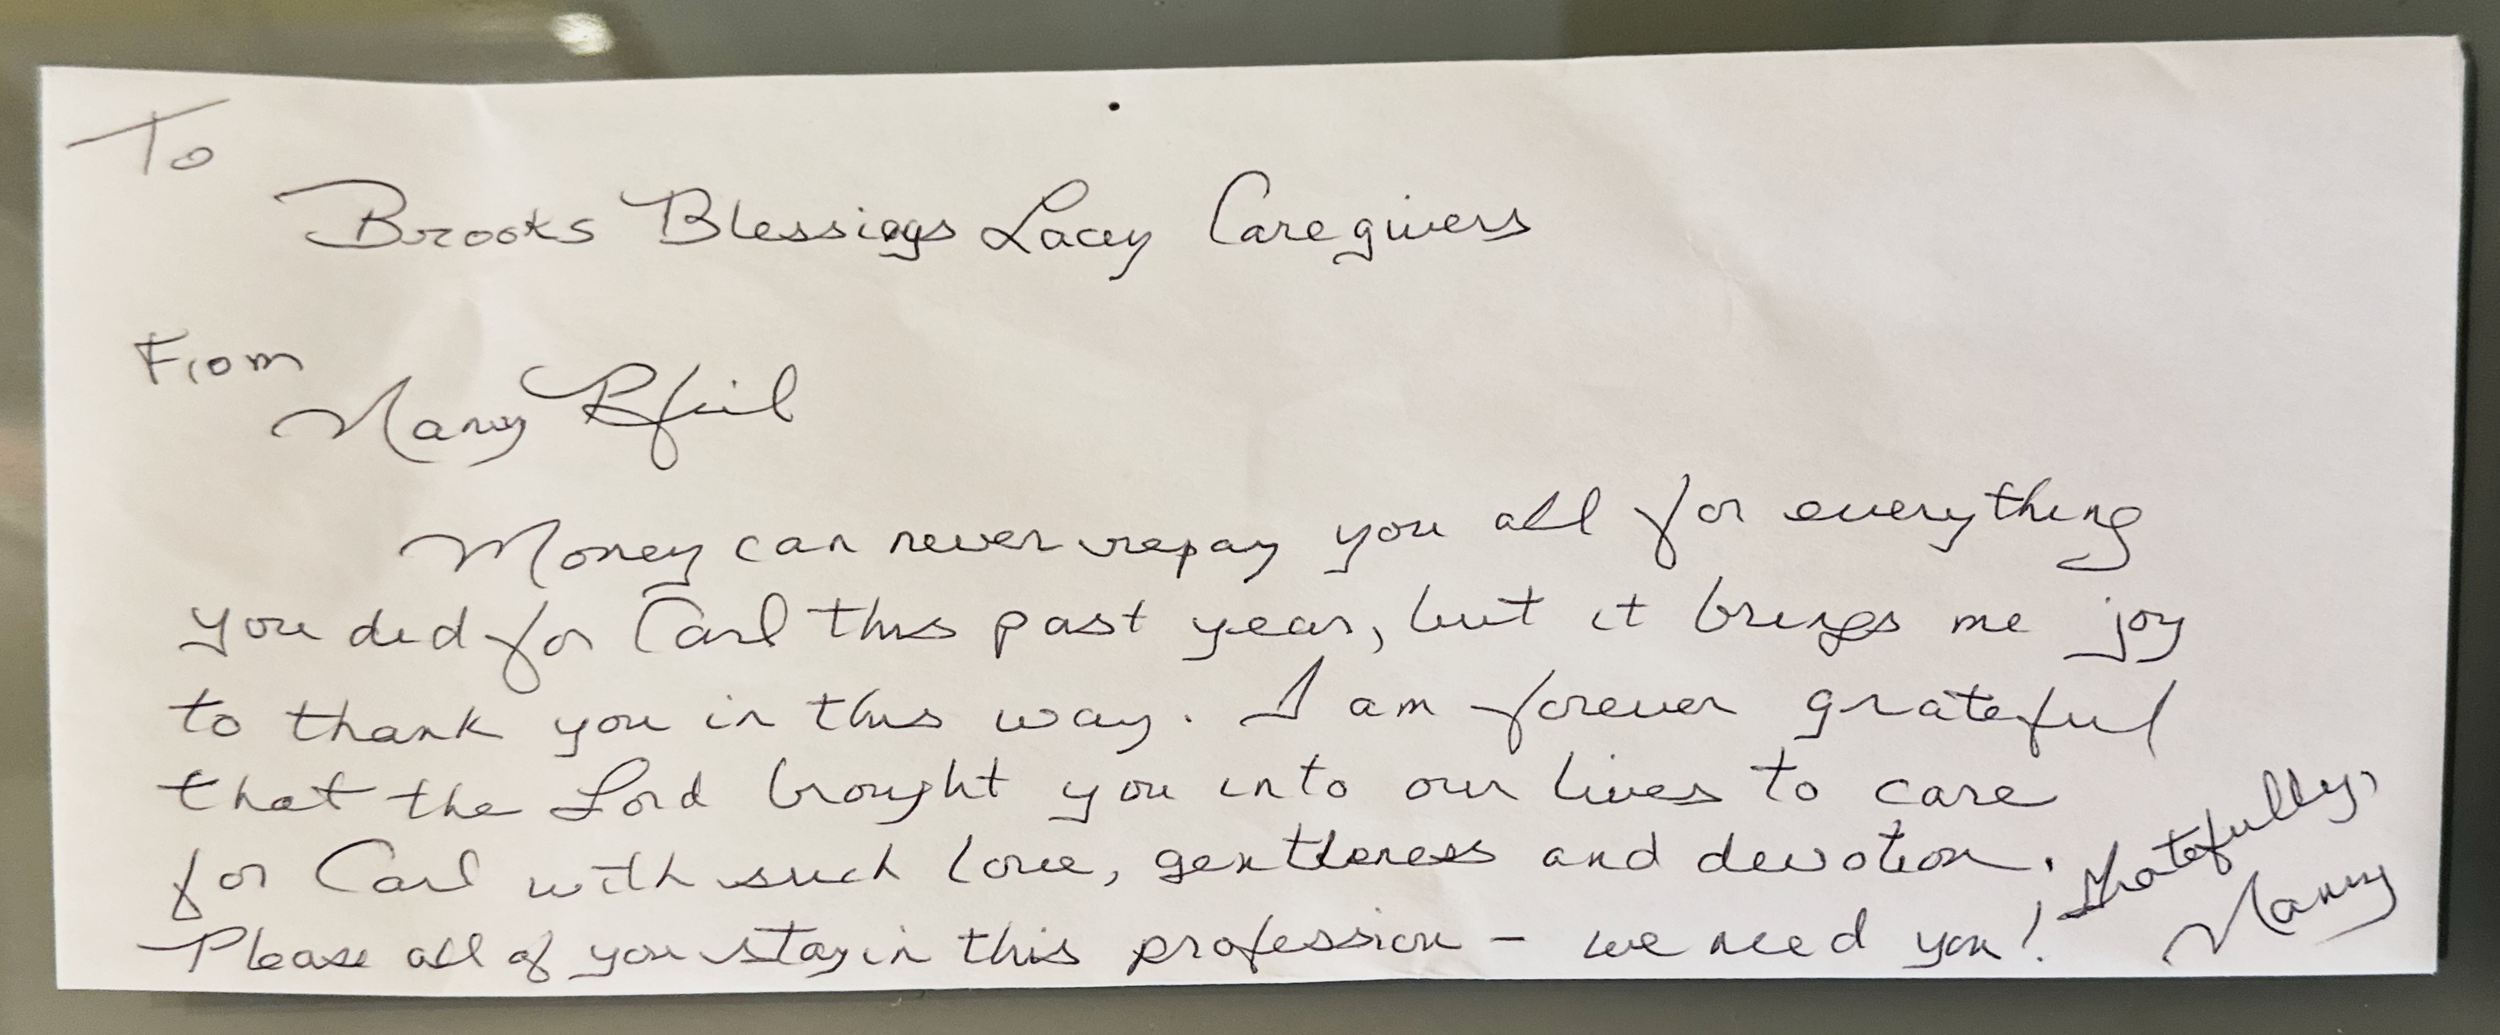 To
Brooks Blessings Lacey Caregivers
From
Nancy
Money can never repay you all for everything
you did for Carl this past year, but it brings me joy
to thank you in this way. I am forever grateful
that the Lord brought you into our lives to care
for Carl with such love, gentleness and devotion.
Please all of you stay in this profession - we need you!
Gratefully,
Nancy